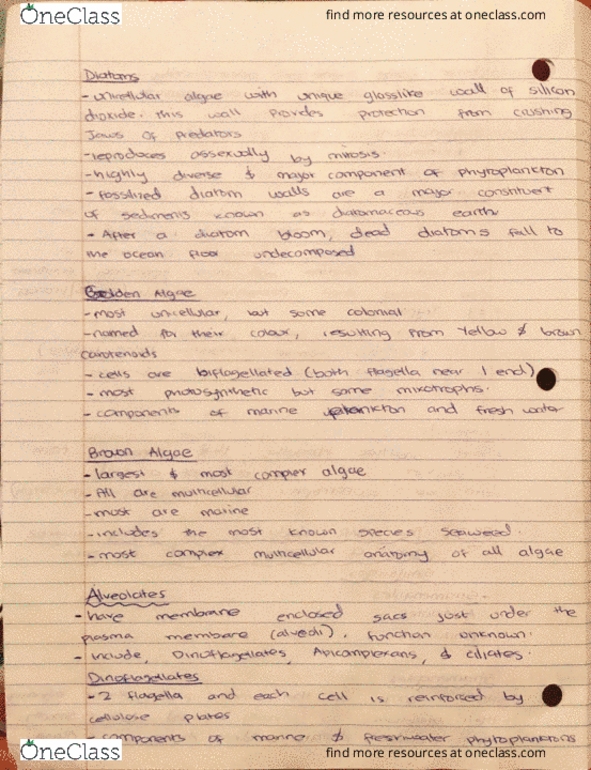 OneClass
find more resources at oneclass.com
Diatoms
- unicellular algae with unique glasslike wall of silicon
dioxide. this wall provides protection from crushing
Jaws of predators
- reproduces assexually by mitosis.
- highly diverse & major component of phytoplankton
- fossilized diatom walls are a major constituent
of sediments known as diatomaceous earth
- After a diatom bloom, dead diatoms fall to
the ocean floor undecomposed
Golden Algae
- most unicellular, but some colonial
- named for their colour, resulting from Yellow & brown
carotenoids
- cells are biflagellated (both flagella near 1 end)
- most photosynthetic but some mixotrophs.
- components of marine plankton and fresh water
Brown Algae
- largest & most complex algae
- All are multicellular
- most are marine
- includes the most known species seaweed.
- most complex multicellular anatomy of all algae
Alveolates
- have membrane enclosed sacs just under the
plasma membrane (alveoli), function unknown.
- include, Dinoflagellates, Apicomplexans, & ciliates.
Dinoflagellates
- 2 flagella and each cell is reinforced by
cellulose plates
- components of marine & freshwater phytoplanktons
OneClass
find more resources at oneclass.com